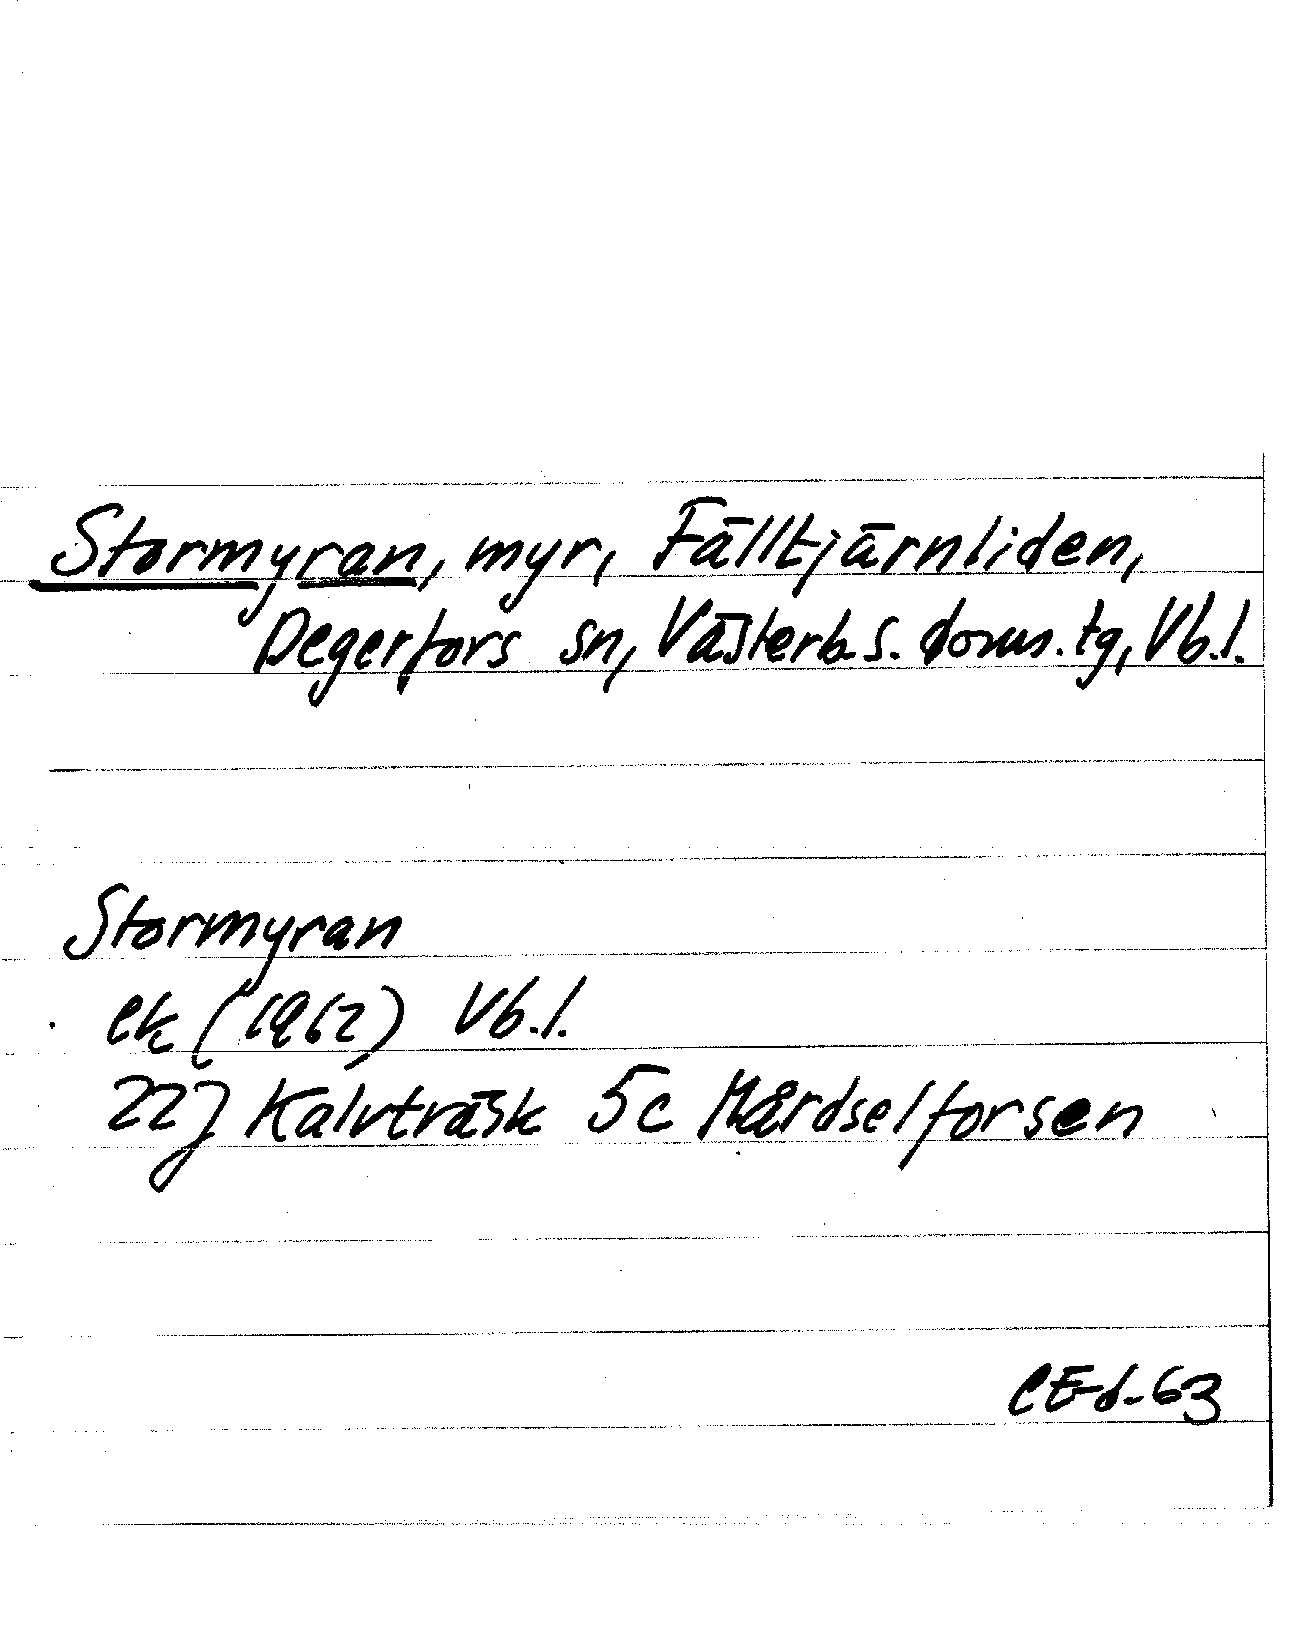 Stormyran, myr, Fälltjärnliden,
Degerfors sn, Västerb. s. doms. tg, Vb. l.
Stormyran
ek (1962) Vb. l.
22J Kalvträsk 5c Mårdselforsen
CEd-63